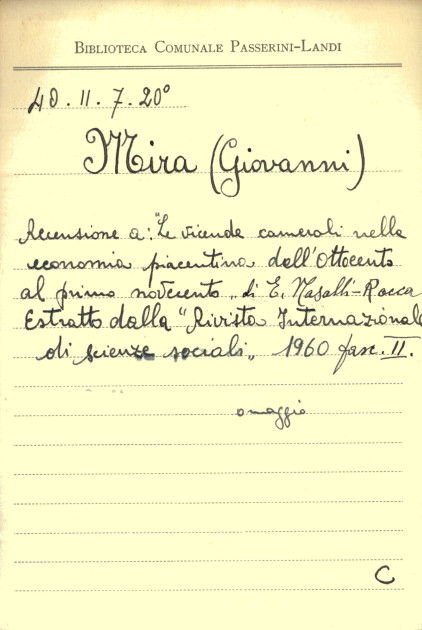 BIBLIOTECA COMUNALE PASSERINI-LANDI
40.II.7.20°
Mira (Giovanni)
Recensione a: "Le vicende camerali nella
economia piacentina dell'Ottocento
al primo novecento„ di E. Nasalli-Rocca
Estratto dalla "Rivista Internazionale
di scienze sociali„ 1960 fasc. II.
omaggio
C